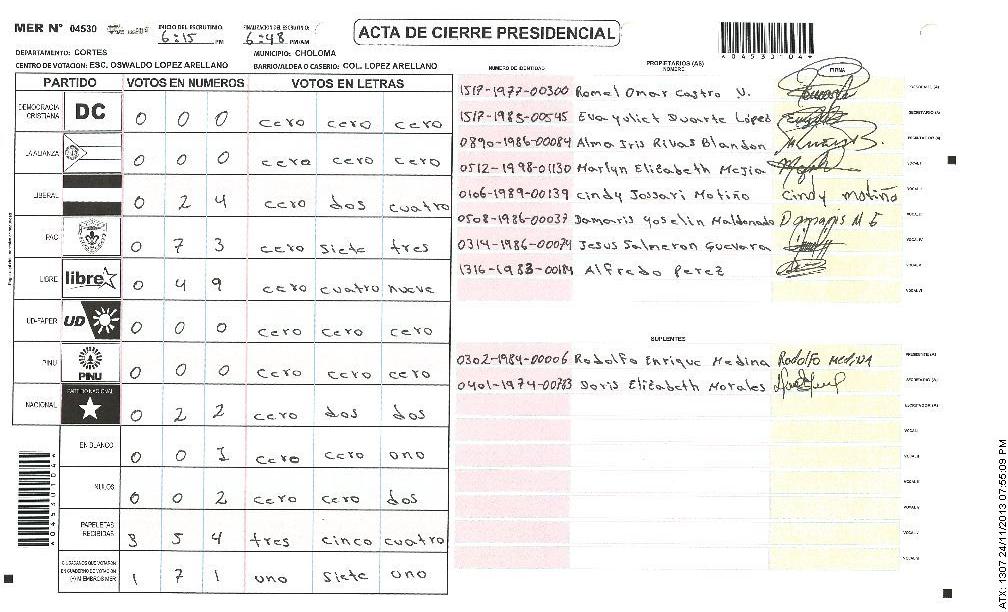 MER Nº 04530 INICIO DEL ESCRUTINIO: 6:15 PM FINALIZACION DEL ESCRUTINIO: 6:48 PM/AM
ACTA DE CIERRE PRESIDENCIAL
*04530104*
DEPARTAMENTO: CORTES MUNICIPIO: CHOLOMA
CENTRO DE VOTACION: ESC. OSWALDO LOPEZ ARELLANO BARRIO/ALDEA O CASERIO: COL. LOPEZ ARELLANO
PARTIDO VOTOS EN NUMEROS VOTOS EN LETRAS
DEMOCRACIA CRISTIANA DC 0 0 0 cero cero cero
LA ALIANZA 0 0 0 cero cero cero
LIBERAL 0 2 4 cero dos cuatro
PAC 0 7 3 cero siete tres
LIBRE libre 0 4 9 cero cuatro nueve
UD-FAPER UD 0 0 0 cero cero cero
PINU PINU 0 0 0 cero cero cero
NACIONAL PARTIDO NACIONAL 0 2 2 cero dos dos
EN BLANCO 0 0 1 cero cero uno
NULOS 0 0 2 cero cero dos
PAPELETAS RECIBIDAS 3 5 4 tres cinco cuatro
CIUDADANOS QUE VOTARON EN CUADERNO DE VOTACION (+) MIEMBROS MER 1 7 1 uno siete uno
*04530104*
PROPIETARIOS (AS)
NUMERO DE IDENTIDAD NOMBRE FIRMA
1517-1977-00300 Romel Omar Castro V. PRESIDENTE (A)
1517-1985-00545 Eva Yuliet Duarte López SECRETARIO (A)
0890-1986-00084 Alma Iris Rivas Blandon ESCRUTADOR (A)
0512-1998-01130 Marlyn Elizabeth Mejia VOCAL I
0106-1989-00139 Cindy Jossari Motiño Cindy Motiño VOCAL II
0508-1986-00037 Damaris Yoselin Maldonado Damaris M E VOCAL III
0314-1986-00074 Jesus Salmeron Guevara VOCAL IV
1316-1983-00184 Alfredo Perez VOCAL V
VOCAL VI
SUPLENTES
0302-1984-00006 Rodolfo Enrique Medina Rodolfo MEDINA PRESIDENTE (A)
0401-1974-00783 Doris Elizabeth Morales SECRETARIO (A)
ESCRUTADOR (A)
VOCAL I
VOCAL II
VOCAL III
VOCAL IV
VOCAL V
VOCAL VI
ATX: 1307 24/11/2013 07:55:09 PM